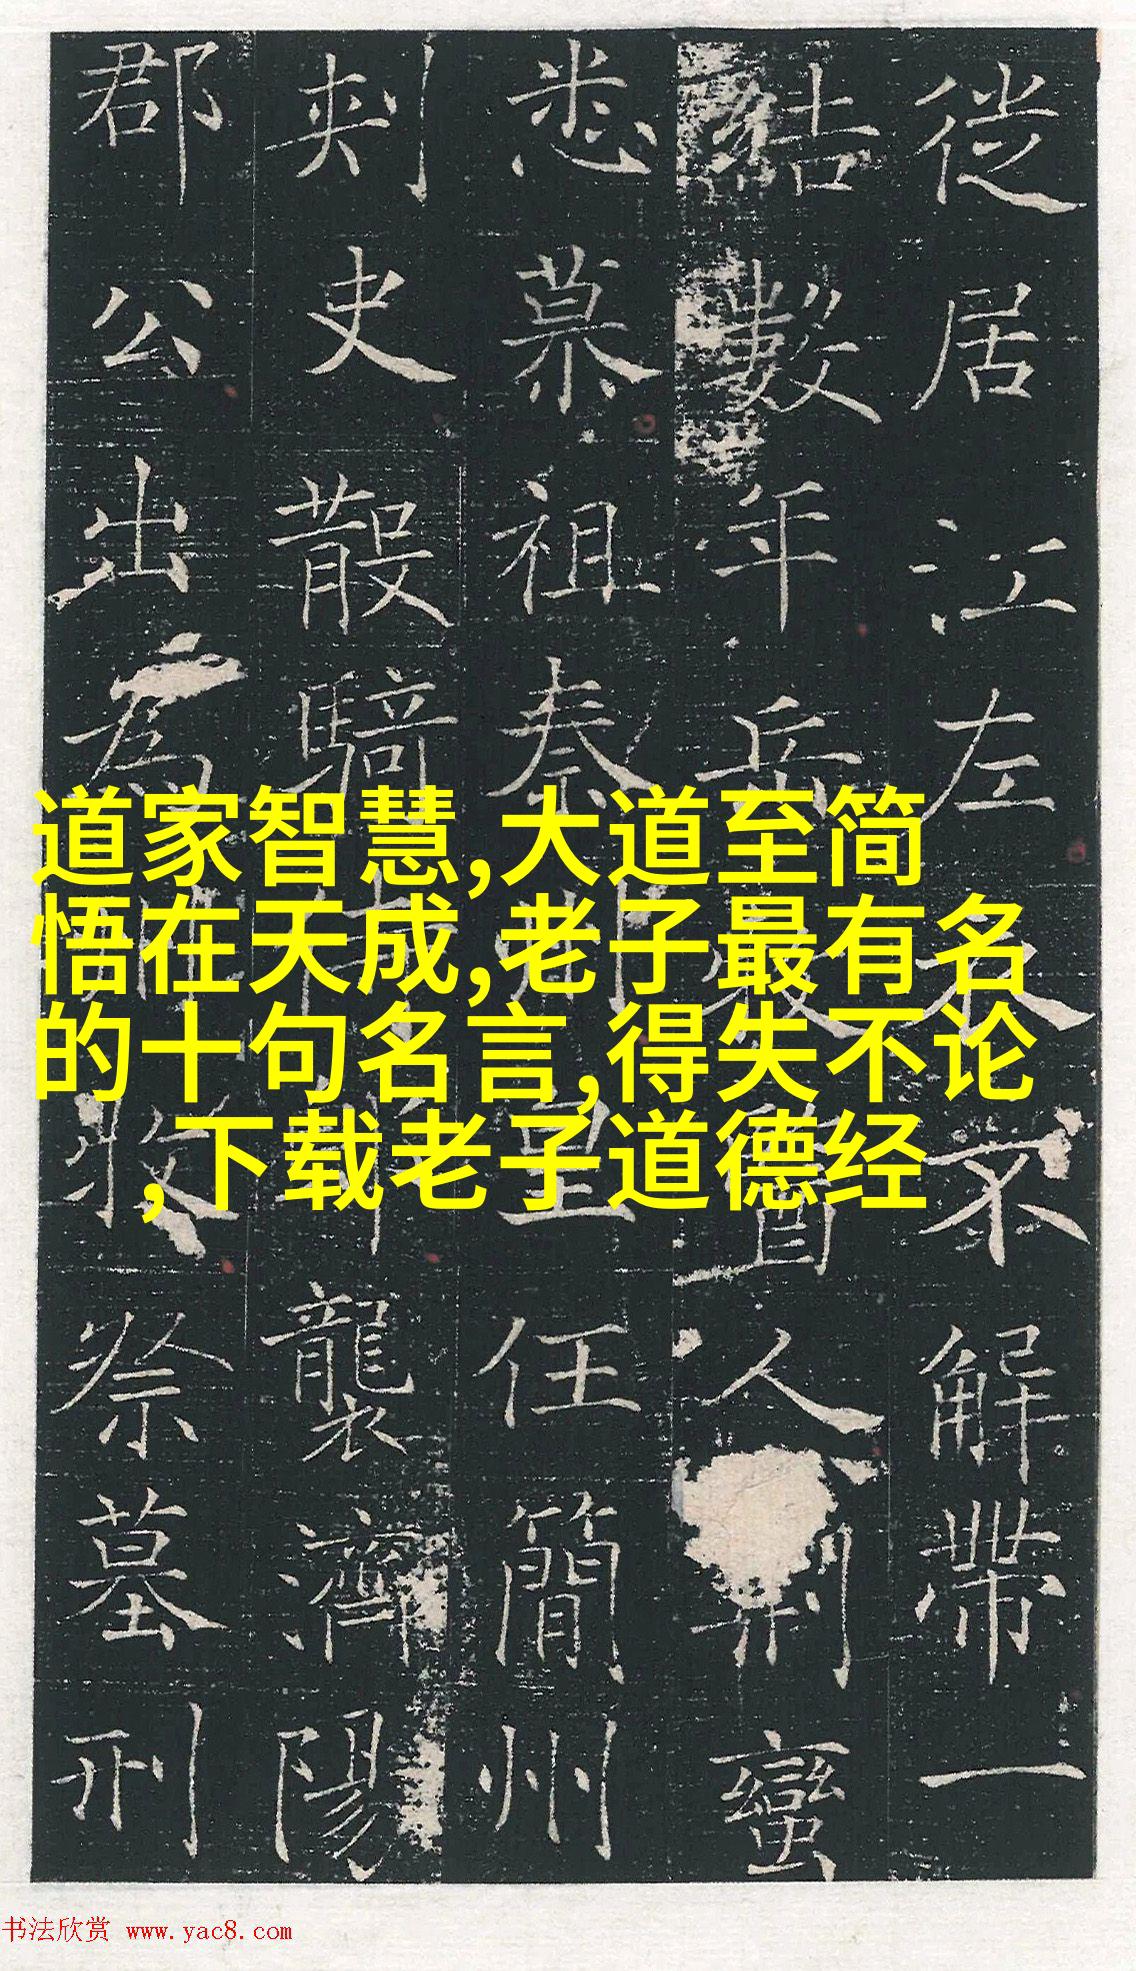 居江左不解帶一
數年人蠻
慕祖任簡州
刺史散騎襲濟陽
郡公出為祭墓刑
道家智慧,大道至简
悟在天成,老子最有名
的十句名言,得失不论
,下载老子道德经
书法欣赏 www.yac8.com